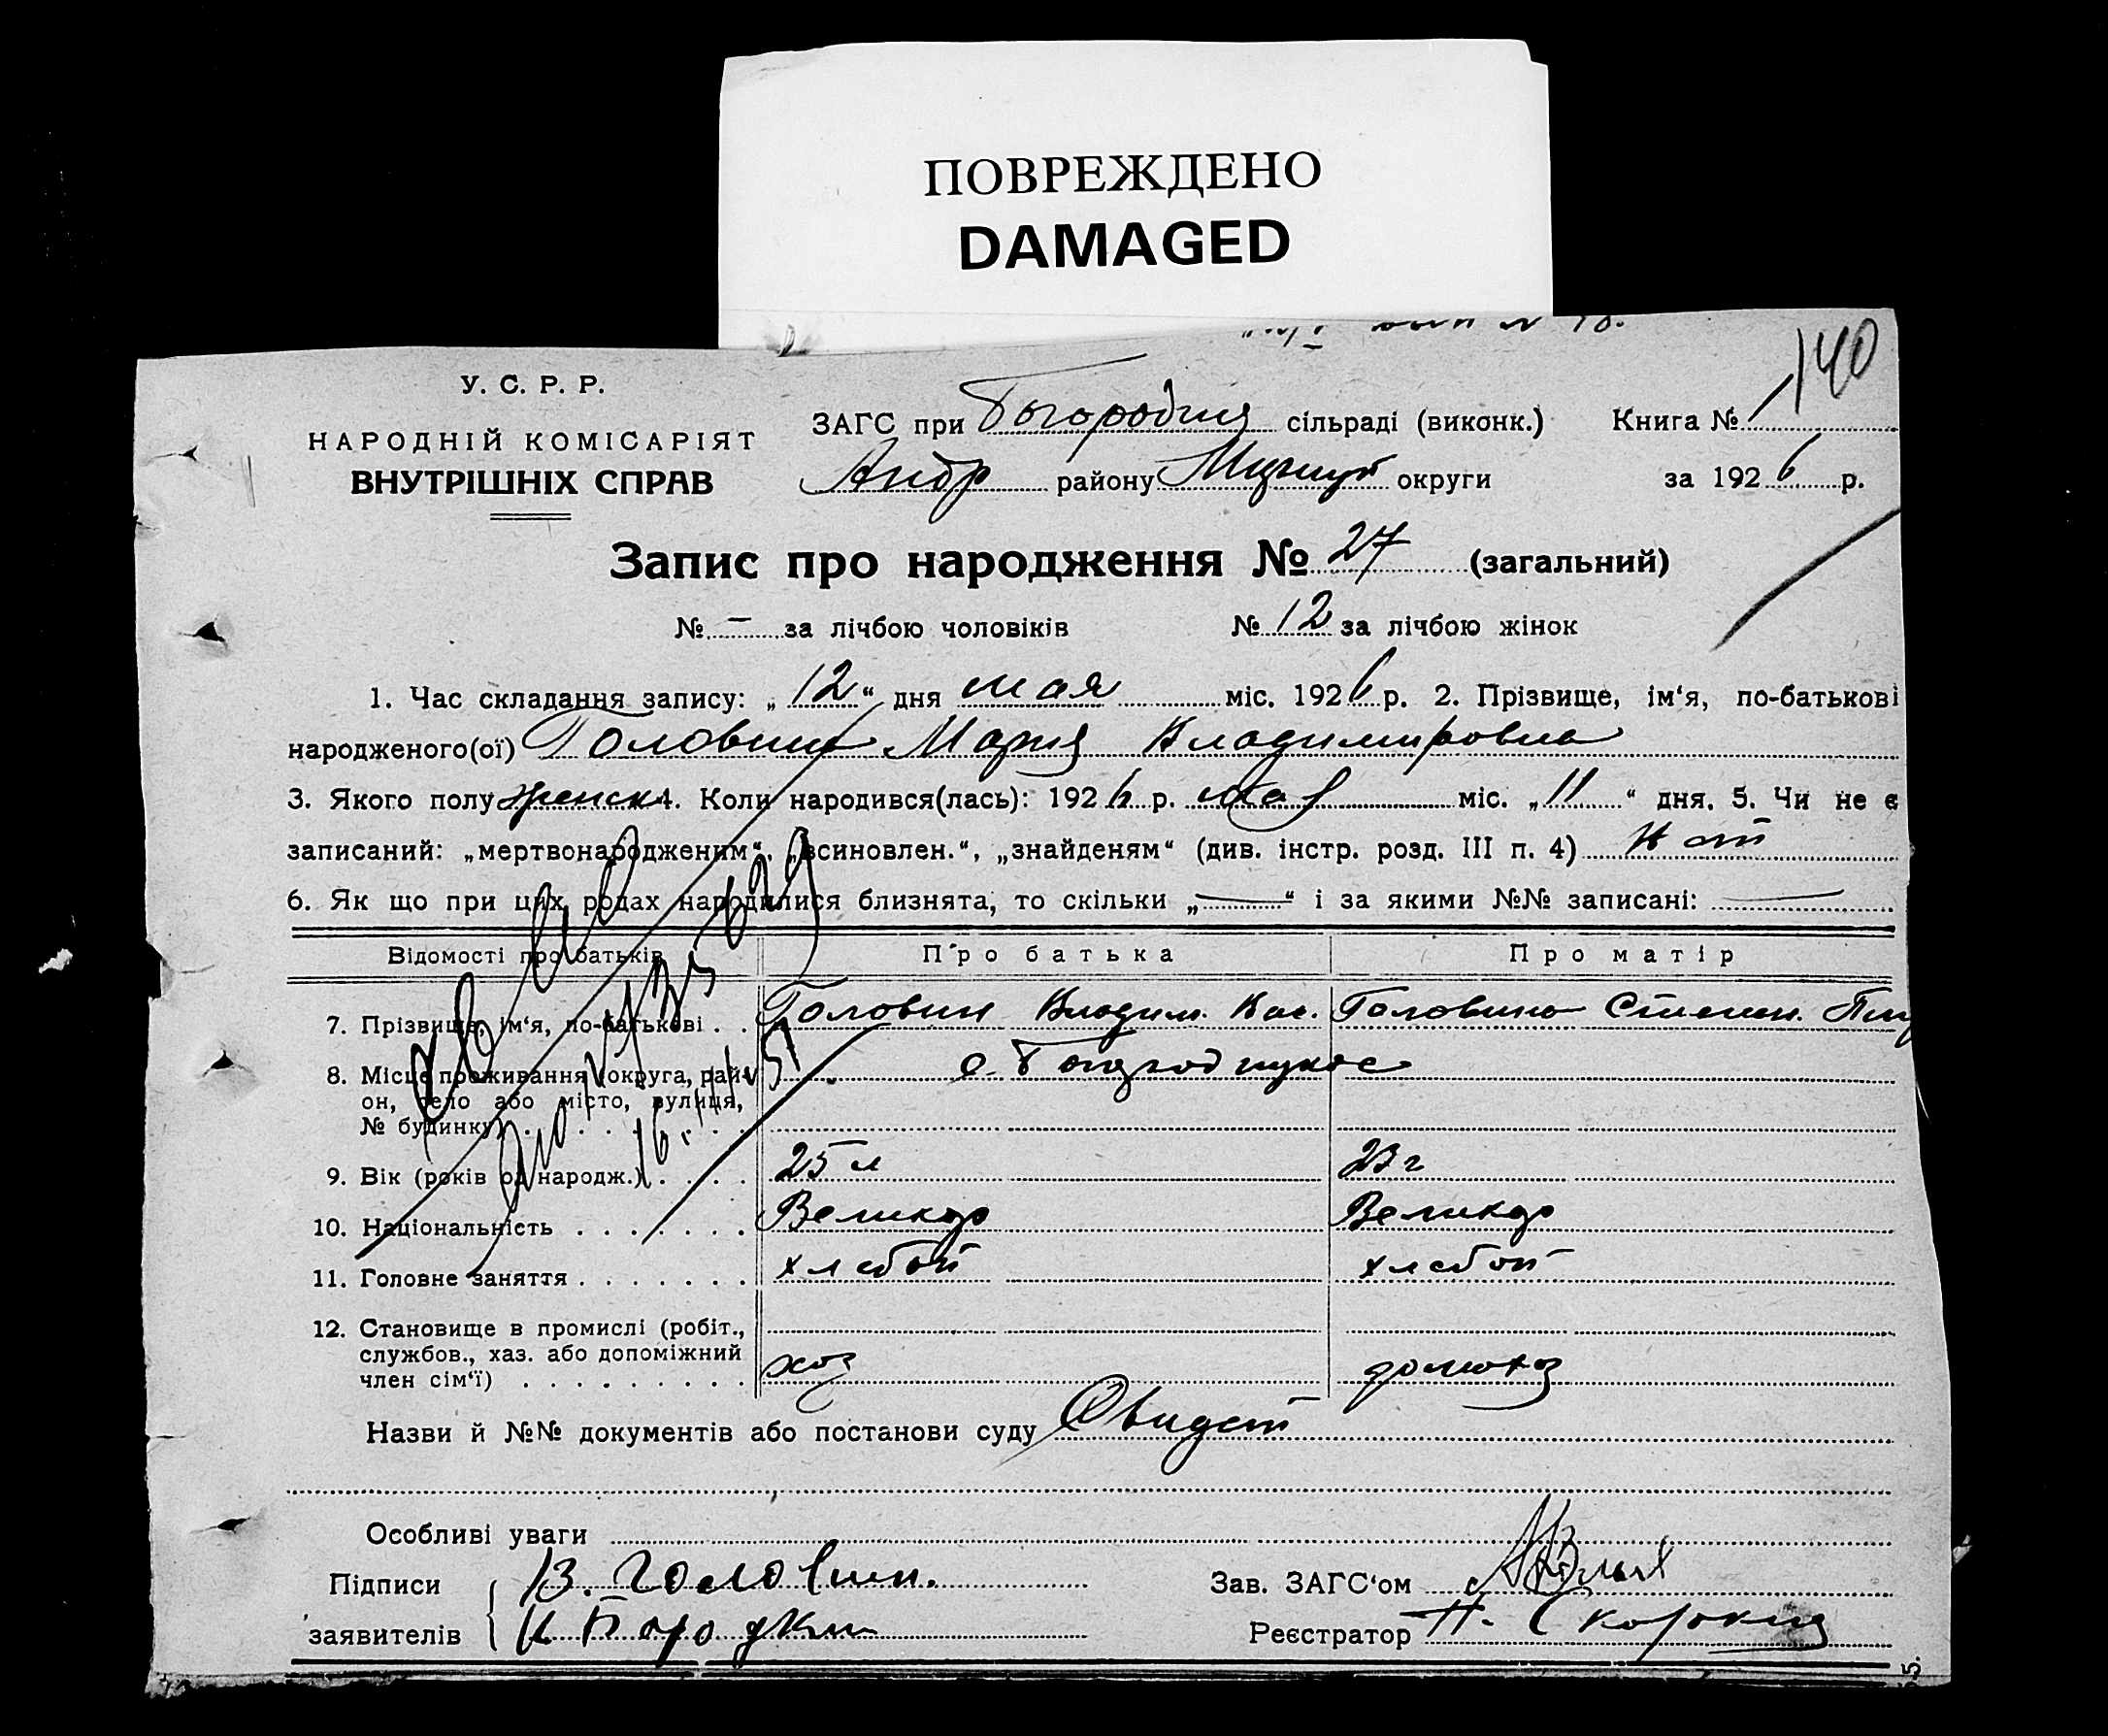 ПОВРЕЖДЕНО
DAMAGED
140
У. С. Р. Р.
НАРОДНІЙ КОМІСАРІЯТ
ВНУТРІШНІХ СПРАВ
ЗАГС при сільраді (виконк.) Книга № 1
Андр району округи за 1926 р.
Запис про народження № 27 (загальний)
№ — за лічбою чоловіків № 12 за лічбою жінок
1. Час складання запису: „12“ дня мая міс. 1926 р. 2. Прізвище, ім‘я, по-батькові
народженого(ої) Головина Мария Владимировна
3. Якого полу женск 4. Коли народився(лась): 1926 р. мая міс. „11“ дня. 5. Чи не є
записаний: „мертвонародженим“, „всиновлен.“, „знайденям“ (див. інстр. розд. III п. 4) Нет
6. Як що при цих родах народилися близнята, то скільки „—“ і за якими №№ записані: —
Відомості про батьків Про батька Про матір
7. Прізвище, ім‘я, по-батькові . . Головин Владим. Вас. Головина Степан.
8. Місце проживання (округа, рай-
он, село або місто, вулиця,
№ будинку) . . . . . . .
9. Вік (років од народж.) . . . . 25 л 23 г
10. Національність . . . . . . . Великор Великор
11. Головне заняття . . . . . . . хлебоп хлебоп
12. Становище в промислі (робіт.,
службов., хаз. або допоміжний
член сім‘ї) . . . . . . . . . хоз домохоз
Назви й №№ документів або постанови суду
Особливі уваги
Підписи В. Головин. Зав. ЗАГС‘ом
заявителів Реєстратор П.